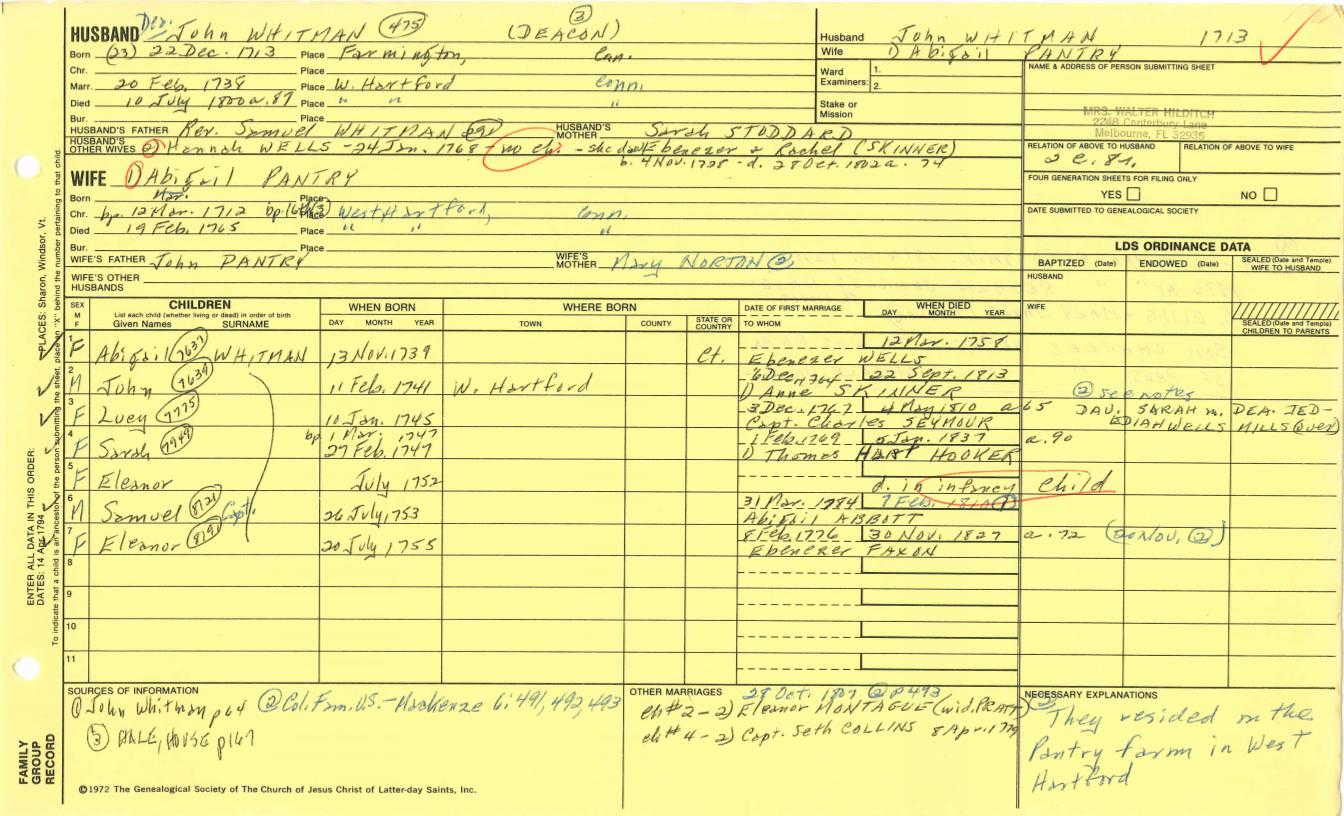 HUSBAND Dea. John WHITMAN (475) (DEACON) (3)
Born (23) 22 Dec. 1713 Place Farmington, Conn.
Chr. Place
Marr. 20 Feb. 1738 Place W. Hartford Conn.
Died 10 July 1800 a. 87 Place " " "
Bur. Place
HUSBAND'S FATHER Rev. Samuel WHITMAN HUSBAND'S MOTHER Sarah STODDARD
HUSBAND'S OTHER WIVES 2) Hannah WELLS - 24 Jan. 1768 - no ch. - she dau Ebenezer & Rachel (SKINNER)
b. 4 Nov. 1728 - d. 28 Oct. 1802 a. 74
WIFE 1) Abigail PANTRY
Born Mar. Place
Chr. bp. 12 Mar. 1712 Place West Hartford, Conn.
Died 19 Feb. 1765 Place " " "
Bur. Place
WIFE'S FATHER John PANTRY WIFE'S MOTHER Mary NORTON (2)
WIFE'S OTHER HUSBANDS
Husband John WHITMAN 1713
Wife 1) Abigail PANTRY
Ward Examiners: 1.
2.
Stake or Mission
NAME & ADDRESS OF PERSON SUBMITTING SHEET
MRS. WALTER HILDITCH
2248 Canterbury Lane
Melbourne, FL 32935
RELATION OF ABOVE TO HUSBAND RELATION OF ABOVE TO WIFE
FOUR GENERATION SHEETS FOR FILING ONLY
YES NO
DATE SUBMITTED TO GENEALOGICAL SOCIETY
LDS ORDINANCE DATA
BAPTIZED (Date) ENDOWED (Date) SEALED (Date and Temple) WIFE TO HUSBAND
HUSBAND
WIFE
SEALED (Date and Temple) CHILDREN TO PARENTS
SEX M F
CHILDREN
List each child (whether living or dead) in order of birth
Given Names SURNAME
WHEN BORN
DAY MONTH YEAR
WHERE BORN
TOWN COUNTY STATE OR COUNTRY
DATE OF FIRST MARRIAGE
TO WHOM
WHEN DIED
DAY MONTH YEAR
1 F Abigail (7637) WHITMAN 13 Nov. 1739 Ct. 12 Mar. 1758
Ebenezer WELLS
2 M John (7639) 11 Feb. 1741 W. Hartford 6 Dec. 1764 22 Sept. 1813
1) Anne SKINNER (2) see notes
3 F Lucy (7775) 10 Jan. 1745 3 Dec. 1767 4 May 1810 a 65 DAU. SARAH m. DEA. JED-
Capt. Charles SEYMOUR EDIAH WELLS MILLS (over)
4 F Sarah (7949) bp 1 Mar. 1747 1 Feb. 1769 5 Jan. 1837 a. 90
27 Feb. 1747 1) Thomas HART HOOKER
5 F Eleanor July 1752 d. in infancy child
6 M Samuel (8121) Capt. 26 July, 1753 31 Mar. 1784 9 Feb. 1810
Abigail ABBOTT
7 F Eleanor 20 July 1755 8 Feb. 1776 30 Nov. 1827 a. 72 (20 NOV, (2))
Ebenezer FAXON
8
9
10
11
SOURCES OF INFORMATION
(1) John Whitman p 64 (2) Col. Fam. U.S. - Mackenzie 6: 491, 492, 493
(3) HALE, HOUSE p 167
OTHER MARRIAGES 29 Oct. 1807 (2) p 493
ch # 2 - 2) Eleanor MONTAGUE (wid. PRATT)
ch # 4 - 2) Capt. Seth COLLINS 8 Apr. 1779
NECESSARY EXPLANATIONS
They resided on the
Pantry farm in West
Hartford
FAMILY GROUP RECORD
©1972 The Genealogical Society of The Church of Jesus Christ of Latter-day Saints, Inc.
ENTER ALL DATA IN THIS ORDER:
DATES: 14 Apr 1794 PLACES: Sharon, Windsor, Vt.
To indicate that a child is an ancestor of the person submitting the sheet, place an "X" behind the number pertaining to that child.